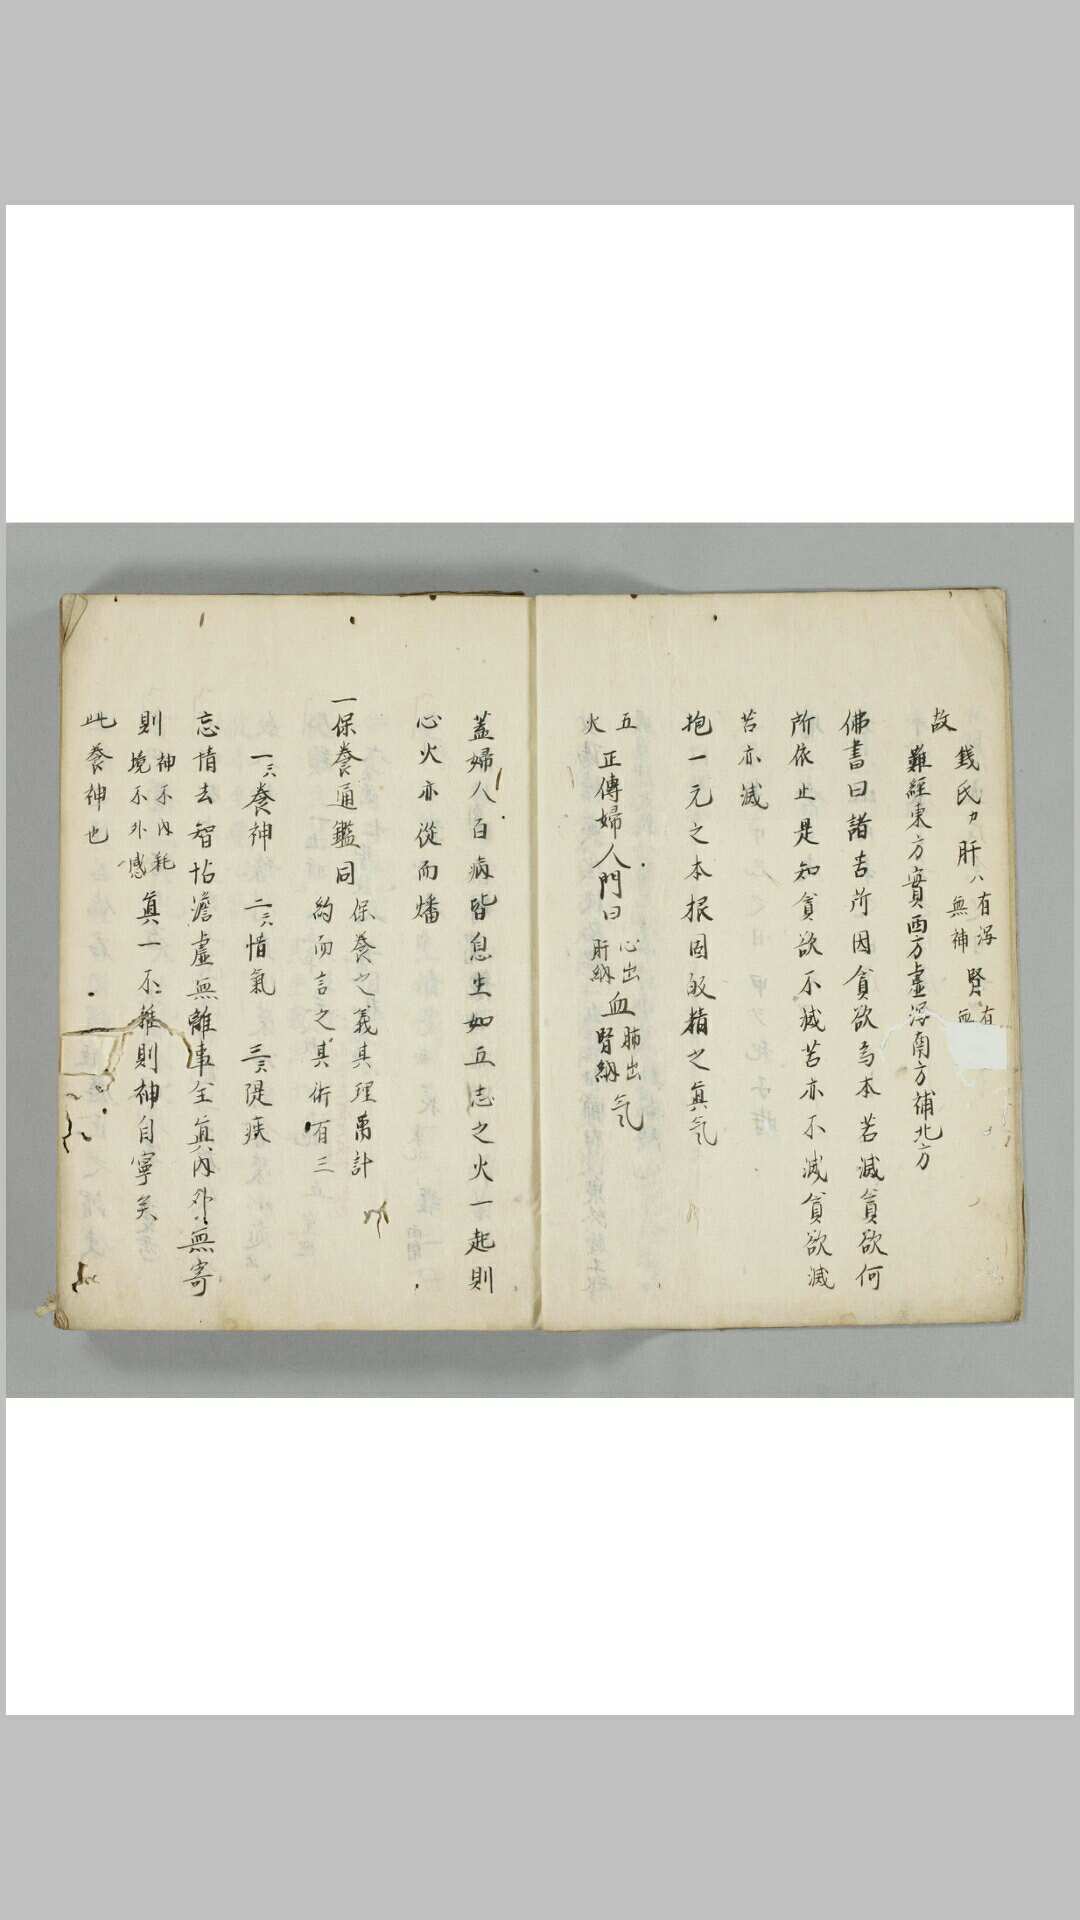 故
錢氏カ肝ハ有瀉無神腎ハ有
難經東方實西方虛瀉南方補北方
佛書曰諸苦所因貪欲為本若滅貪欲何
所依止是知貪欲不滅苦亦不滅貪欲滅
苦亦滅
抱一元之本根固敀精之真氣
五火
正傳婦人門曰心出肝納血肺出腎納気
蓋婦人百病皆息生如五志之火一起則
心火亦從而燔
一保養通鑑同保養之義其理萬計約而言之其術有三
一ニハ養神 二ニハ惜氣 三ニハ隄疾
忘情去智怗澹虛無離事全真內外無寄
則神不內耗境不外感真一不雜則神自寧矣
此養神也